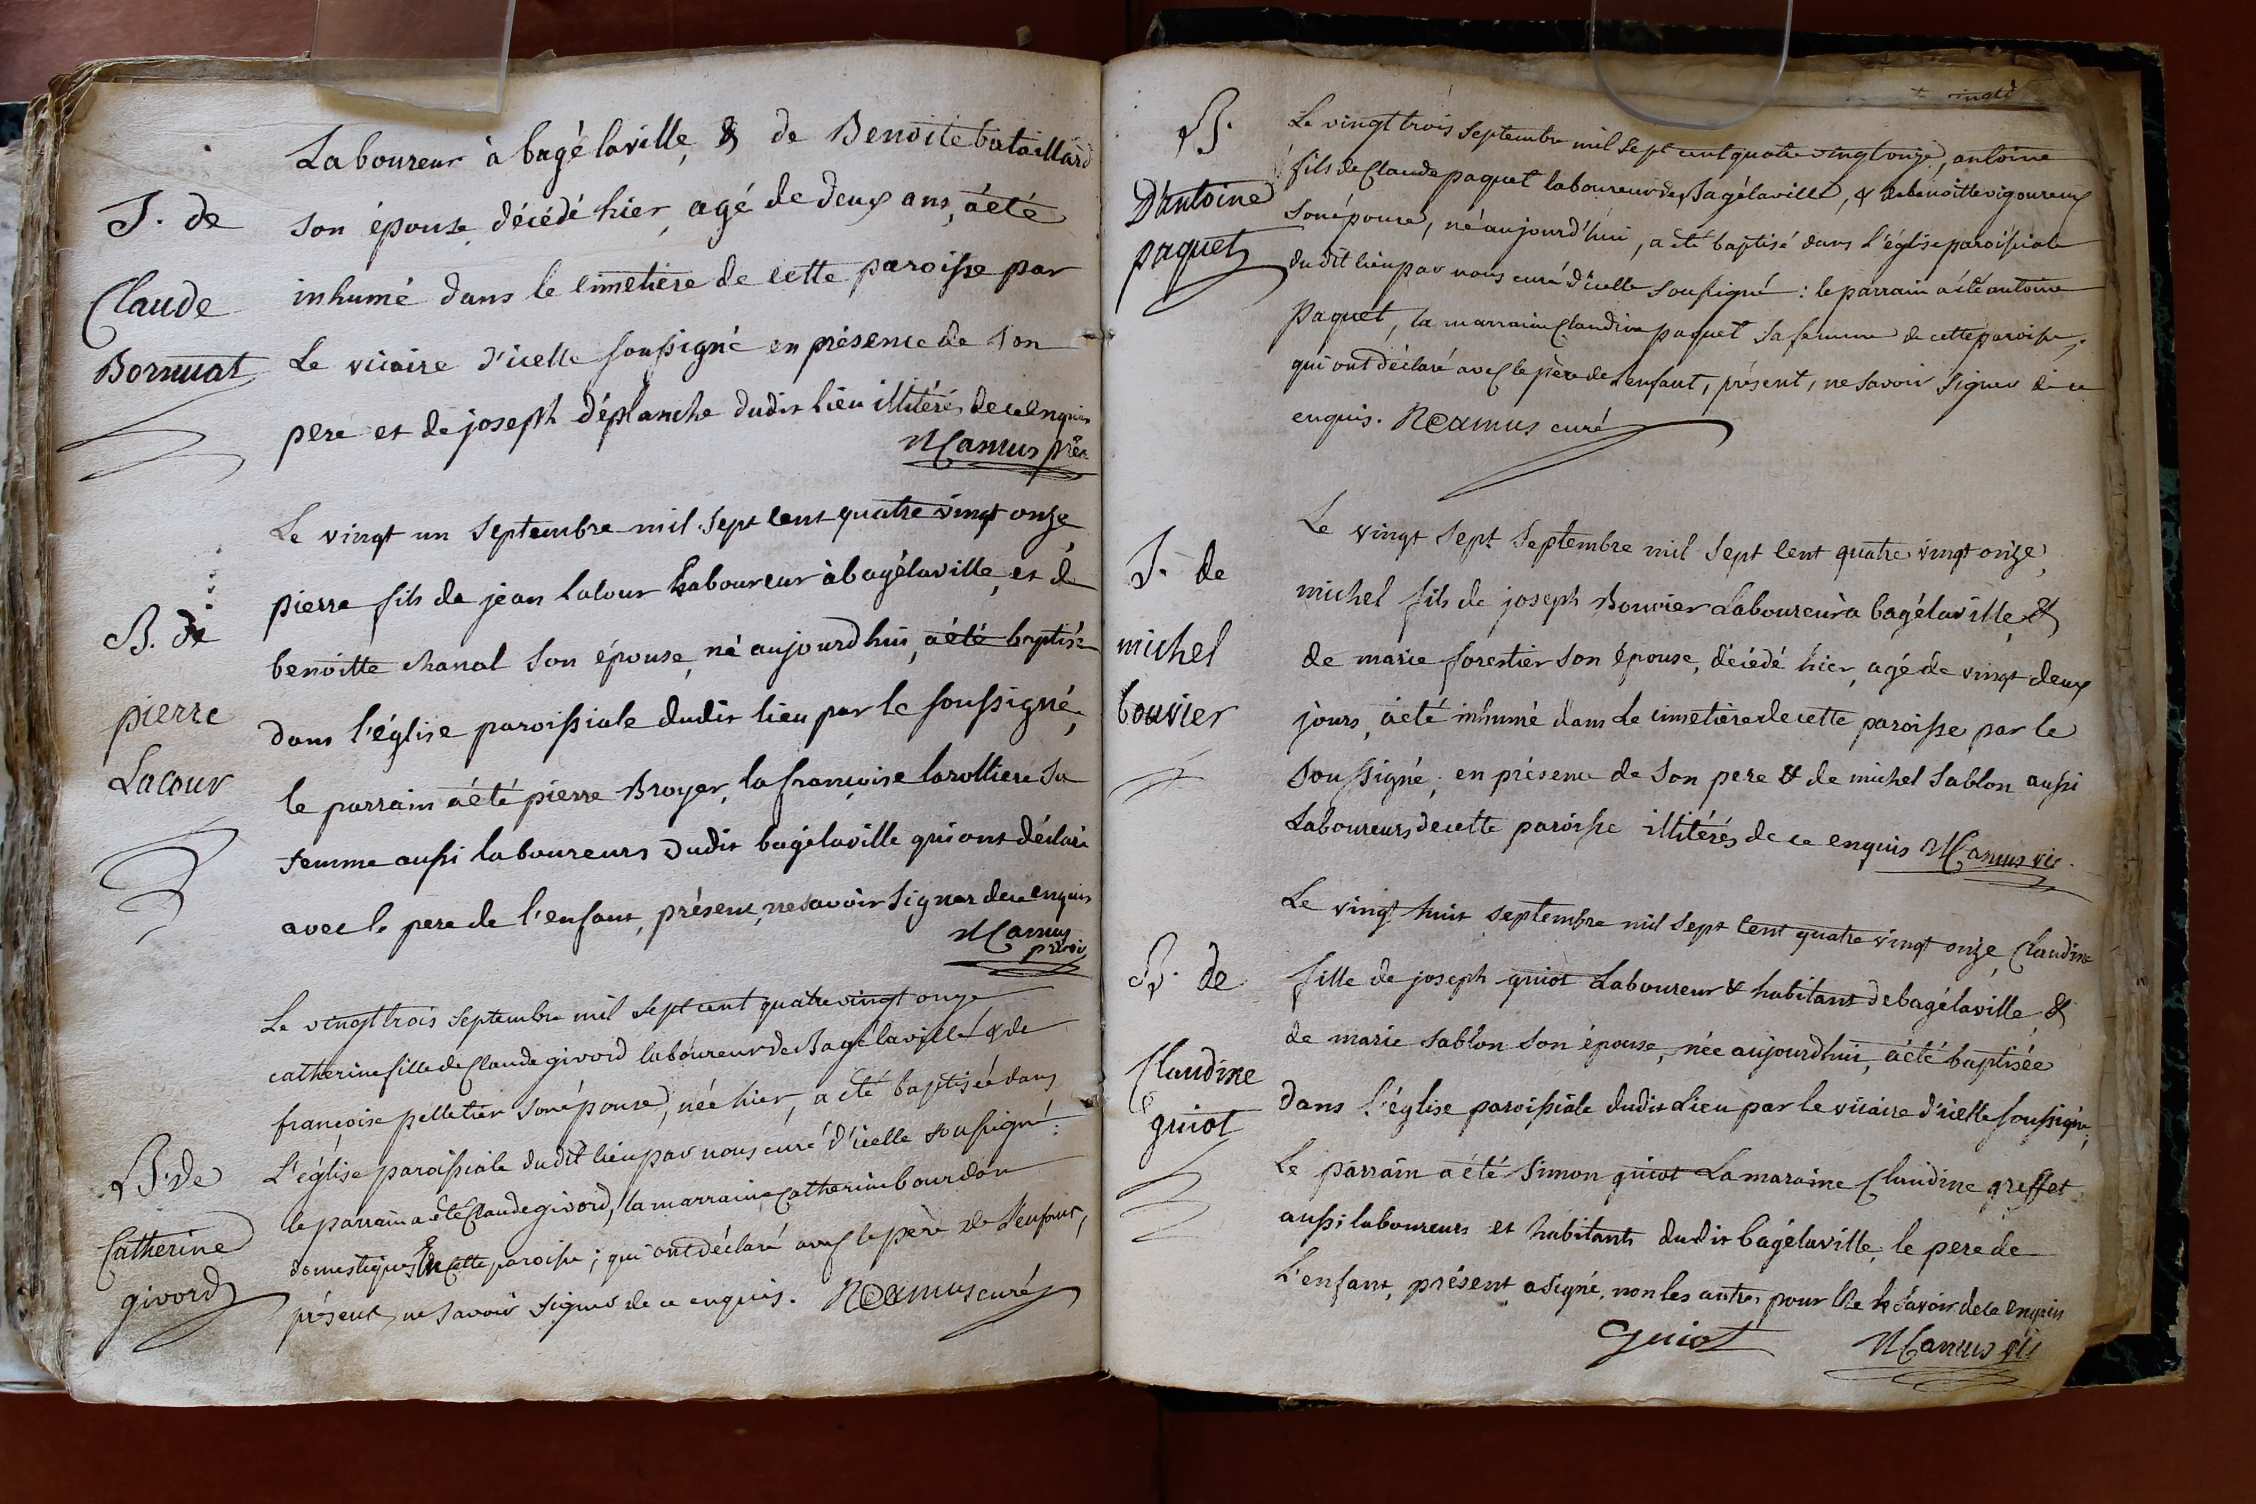 Laboureur à bagélaville, & de Benoite bataillard
J. de
son épouse, décédé hier, agé de deux ans, a été
Claude
inhumé dans le cimetière de cette paroisse par
Bornuat
Le vicaire d'icelle soussigné en présence de son
pere et de joseph déplanche dudit lieu illitérés de ce enquis
N Camus
Le vingt un septembre mil sept cent quatre vingt onze
pierre fils de jean Lacour Laboureur à bagélaville, et de
B. de
benoitte chanal son épouse, né aujourd'hui, a été baptisé
pierre
dans l'église paroissiale dudit lieu par le soussigné,
Lacour
le parrain a été pierre Broyer, la françoise larolliere sa
femme aussi laboureurs dudit bagélaville qui ont déclaré
avec le pere de l'enfant, présent, ne savoir signer de ce enquis
N Camus
Le vingt trois septembre mil sept cent quatre vingt onze
catherine fille de Claude givord laboureur de Bagélaville & de
françoise pelletier son épouse, née hier, a été baptisée dans
B. de
L'église paroissiale du dit lieu par nous curé d'icelle soussigné :
le parrain a été Claude givord, la marraine Catherine bourdon
Catherine
domestiques de cette paroisse ; qui ont déclaré avec le père de l'enfant,
givord
présent, ne savoir signer de ce enquis. N Camus curé
B.
Le vingt trois septembre mil sept cent quatre vingt onze, antoine
D'antoine
fils de Claude paquet laboureur de Bagélaville, & de benoitte vigoureux
paquet
son épouse, né aujourd'hui, a été baptisé dans l'église paroissiale
du dit lieu par nous curé d'icelle soussigné : le parrain a été antoine
Paquet, la marraine Claudine paquet sa femme de cette paroisse,
qui ont déclaré avec le père de l'enfant, présent, ne savoir signer de ce
enquis. N Camus curé
Le vingt sept septembre mil sept cent quatre vingt onze,
J. de
michel fils de joseph Bouvier Laboureur à bagélaville &
michel
de marie forestier son épouse, décédé hier, agé de vingt deux
bouvier
jours, a été inhumé dans le cimetière de cette paroisse par le
soussigné, en présence de son pere & de michel Sablon aussi
Laboureurs de cette paroisse illitérés de ce enquis N Camus vic.
Le vingt huit septembre mil sept cent quatre vingt onze, Claudine
B. de
fille de joseph guiot Laboureur & habitant de bagélaville &
de marie sablon son épouse, née aujourd'hui, a été baptisée
Claudine
dans l'église paroissiale dudit Lieu par le vicaire d'icelle soussigné,
guiot
Le parrain a été Simon guiot La maraine Claudine greffet
aussi laboureurs et habitants dudit bagélaville, le pere de
L'enfant, présent a signé, non les autres pour ne le savoir de ce enquis
Guiot N Camus vic